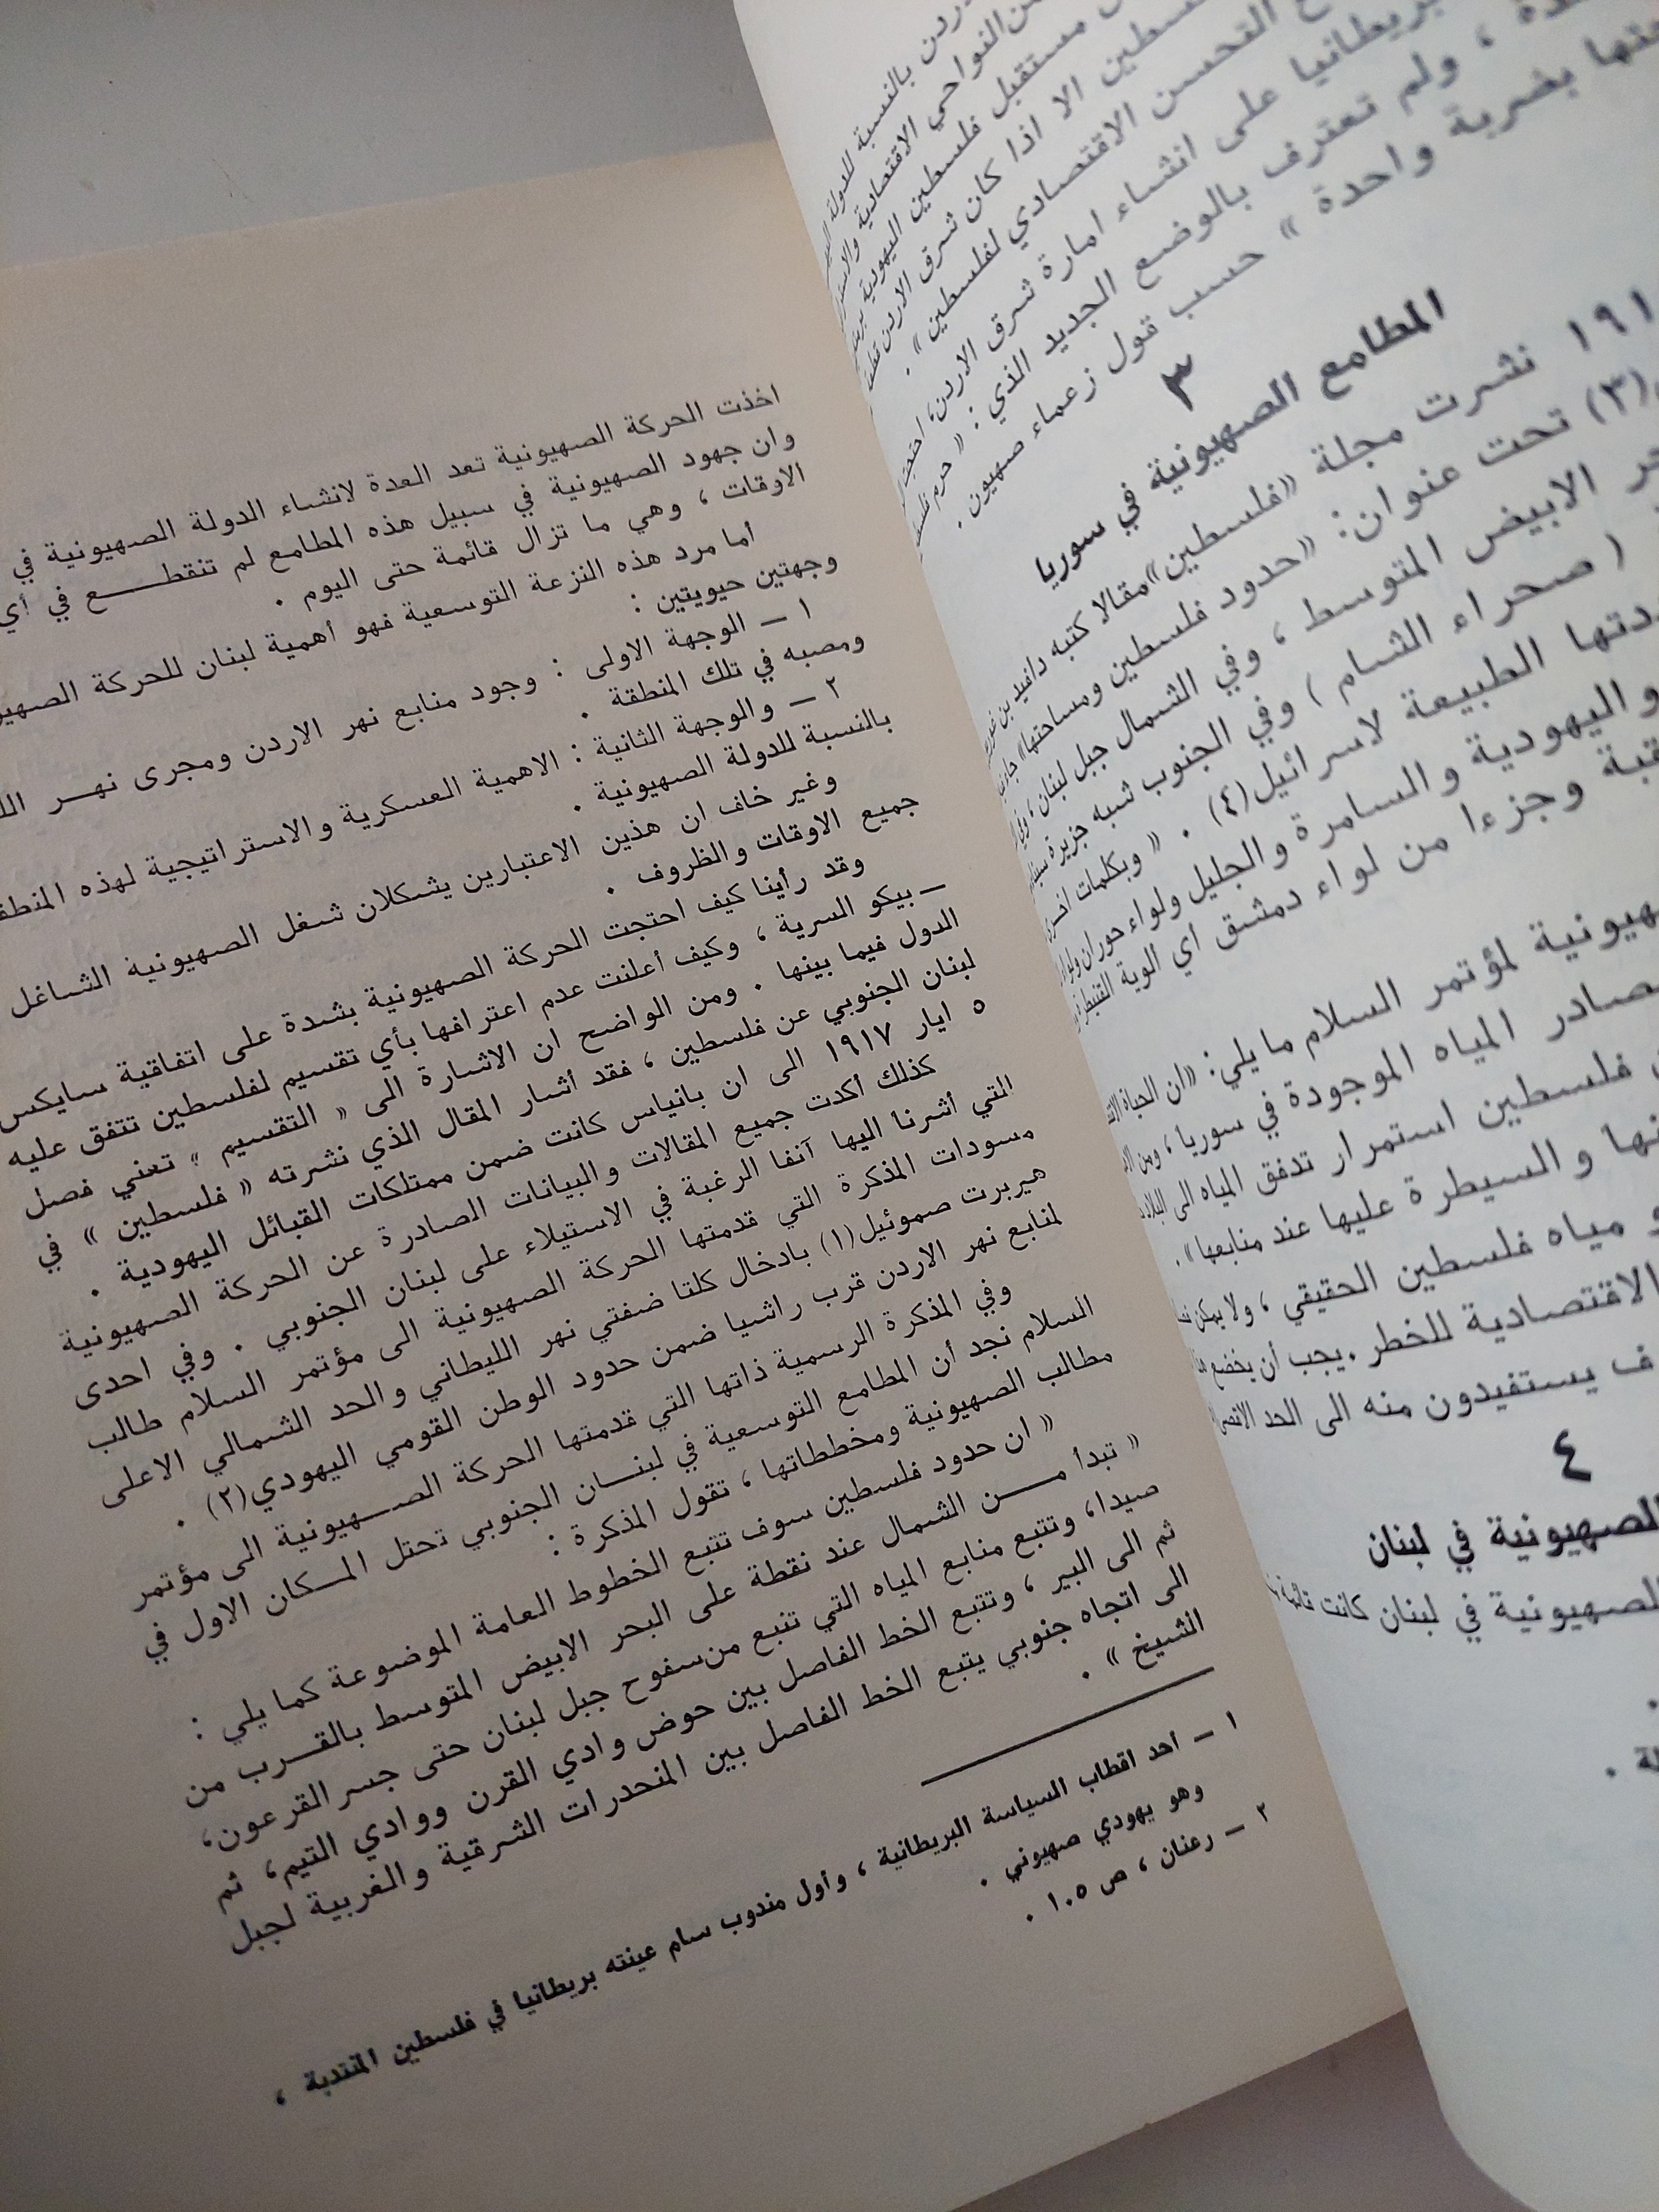 ردن بالنسبة للدولة
من النواحي الاقتصادية
مستقبل فلسطين اليهودية
فلسطين الا اذا كان شرق الاردن قطعة
التحسن الاقتصادي لفلسطين» .
بريطانيا على انشاء امارة شرق الاردن، احتجت
، ولم تعترف بالوضع الجديد الذي : « حرم
بضربة واحدة » حسب قول زعماء صهيون .
٣
المطامع الصهيونية في سوريا
١٩١ نشرت مجلة «فلسطين» مقالا كتبه دافيد بن
(٣) تحت عنوان: «حدود فلسطين ومساحتها»
الابيض المتوسط ، وفي الشمال جبل لبنان ، وفي
( صحراء الشام ) وفي الجنوب شبه جزيرة سيناء
الطبيعة لاسرائيل(٤) . « وبكلمات اخرى
واليهودية والسامرة والجليل ولواء حوران ولواء
وجزءا من لواء دمشق اي الوية القنيطرة
لمؤتمر السلام ما يلي: «ان الحياة
المياه الموجودة في سوريا ، ومن
فلسطين استمرار تدفق المياه الى البلاد
والسيطرة عليها عند منابعها» .
مياه فلسطين الحقيقي ، ولا يمكن
الاقتصادية للخطر . يجب أن يخضع
يستفيدون منه الى الحد الاقصى
٤
الصهيونية في لبنان
الصهيونية في لبنان كانت قائمة
اخذت الحركة الصهيونية تعد العدة لانشاء الدولة الصهيونية في
وان جهود الصهيونية في سبيل هذه المطامع لم تنقطع في أي
الاوقات ، وهي ما تزال قائمة حتى اليوم .
أما مرد هذه النزعة التوسعية فهو أهمية لبنان للحركة
وجهتين حيويتين :
١ – الوجهة الاولى : وجود منابع نهر الاردن ومجرى نهر
ومصبه في تلك المنطقة .
٢ – والوجهة الثانية : الاهمية العسكرية والاستراتيجية لهذه
بالنسبة للدولة الصهيونية .
وغير خاف ان هذين الاعتبارين يشكلان شغل الصهيونية الشاغل
جميع الاوقات والظروف .
وقد رأينا كيف احتجت الحركة الصهيونية بشدة على اتفاقية سايكس
– بيكو السرية ، وكيف أعلنت عدم اعترافها بأي تقسيم لفلسطين تتفق عليه
الدول فيما بينها . ومن الواضح ان الاشارة الى « التقسيم » تعني فصل
لبنان الجنوبي عن فلسطين ، فقد أشار المقال الذي نشرته « فلسطين » في
٥ ايار ١٩١٧ الى ان بانياس كانت ضمن ممتلكات القبائل اليهودية .
كذلك أكدت جميع المقالات والبيانات الصادرة عن الحركة الصهيونية
التي أشرنا اليها آنفا الرغبة في الاستيلاء على لبنان الجنوبي . وفي احدى
مسودات المذكرة التي قدمتها الحركة الصهيونية الى مؤتمر السلام طالب
هيربرت صموئيل(١) بادخال كلتا ضفتي نهر الليطاني والحد الشمالي الاعلى
لمنابع نهر الاردن قرب راشيا ضمن حدود الوطن القومي اليهودي(٢) .
وفي المذكرة الرسمية ذاتها التي قدمتها الحركة الصهيونية الى مؤتمر
السلام نجد أن المطامع التوسعية في لبنان الجنوبي تحتل المكان الاول في
مطالب الصهيونية ومخططاتها ، تقول المذكرة :
« ان حدود فلسطين سوف تتبع الخطوط العامة الموضوعة كما يلي :
« تبدأ من الشمال عند نقطة على البحر الابيض المتوسط بالقرب من
صيدا، وتتبع منابع المياه التي تنبع من سفوح جبل لبنان حتى جسر القرعون،
ثم الى البير ، وتتبع الخط الفاصل بين حوض وادي القرن ووادي التيم، ثم
الى اتجاه جنوبي يتبع الخط الفاصل بين المنحدرات الشرقية والغربية لجبل
الشيخ » .
١ – أحد اقطاب السياسة البريطانية ، وأول مندوب سام عينته بريطانيا في فلسطين المنتدبة ،
وهو يهودي صهيوني .
٢ – رعنان ، ص ١٠٥ .